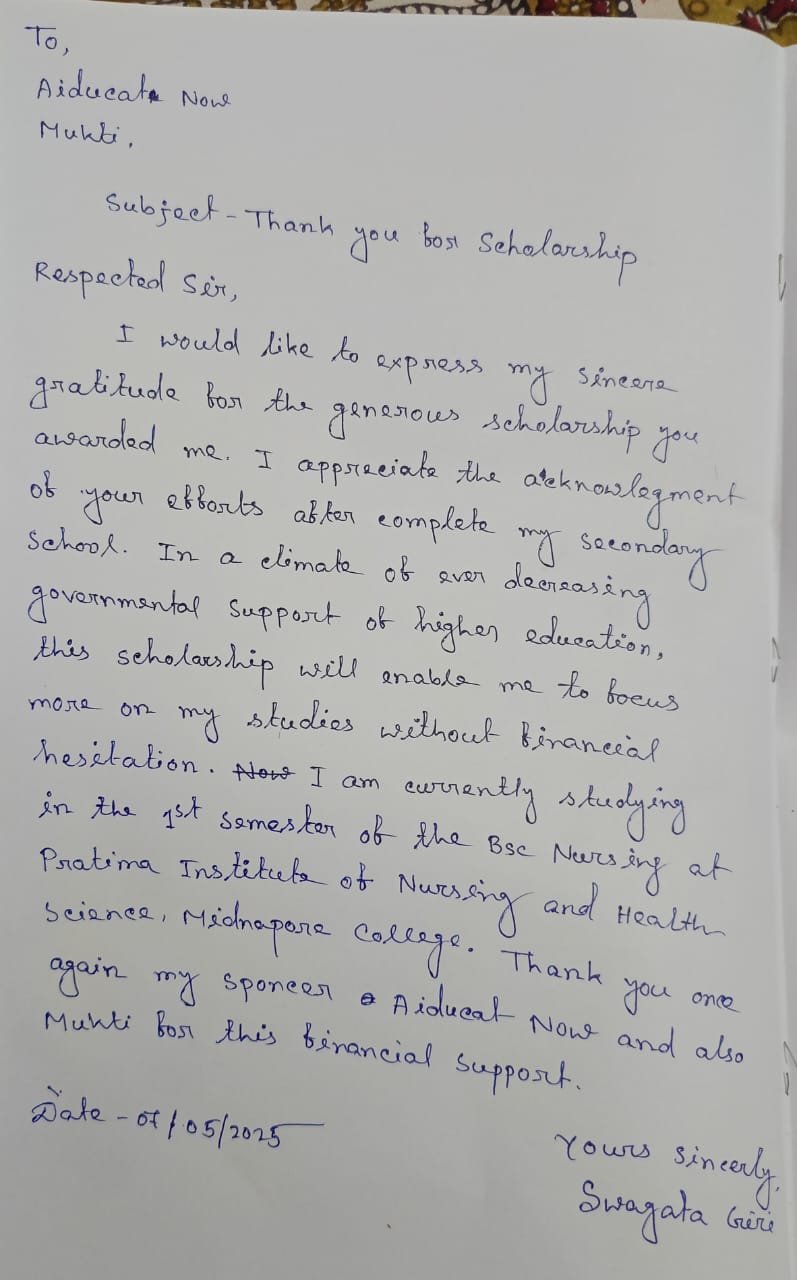 To,
Aiducate Now
Mukti,
Subject - Thank you for Scholarship
Respected Sir,
I would like to express my sincere
gratitude for the generous scholarship you
awarded me. I appreciate the acknowlegment
of your efforts after complete my secondary
School. In a climate of ever decreasing
governmental support of higher education,
this scholarship will enable me to focus
more on my studies without financial
hesitation. Now I am currently studying
in the 1st semester of the Bsc Nursing at
Pratima Institute of Nursing and Health
Science, Midnapore College. Thank you once
again my sponcer Aiducat Now and also
Mukti for this financial support.
Date - 07/05/2025
Yours sincerly,
Swagata Giri